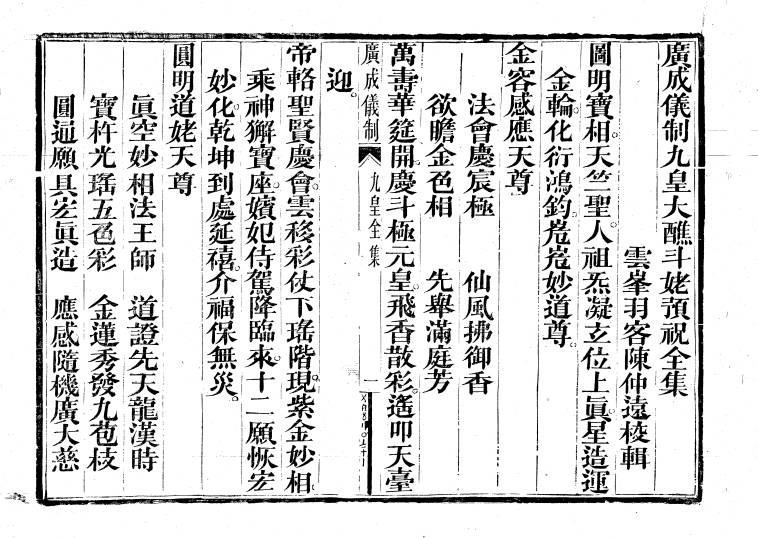 廣成儀制九皇大醮斗姥預祝全集
雲峯羽客陳仲遠校輯
圓明寶相。天竺聖人。祖炁凝玄位上眞。星造運
金輪。化衍鴻鈞。嵬嵬妙道尊。
金容感應天尊
法會慶宸極　仙風拂御香
欲瞻金色相　先舉滿庭芳
萬壽華筵開。慶斗極元皇。飛香散彩。遙叩天臺
廣成儀制　九皇全集　一
迎。
帝輅聖賢慶會。雲移彩仗下瑤階。現紫金妙相。
乘神獬寶座。嬪妃侍駕降臨來。十二願恢宏
妙化乾坤到處延禧。介福保無災。
圓明道姥天尊
眞空妙相法王師　道證先天龍漢時
寶杵光瑤五色彩　金蓮秀發九苞枝
圓通願具宏眞造　應感隨機廣大慈